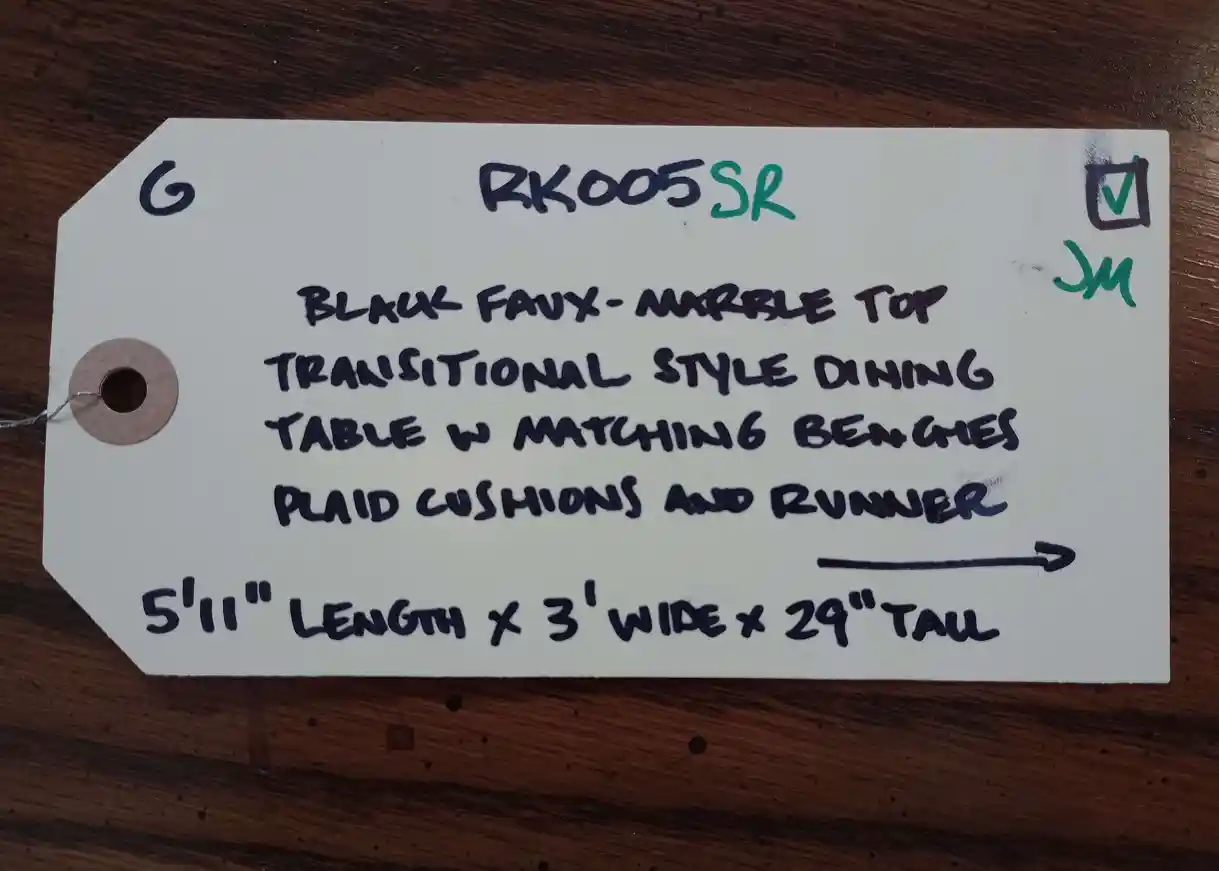 G RK005SR ☑
JM
BLACK FAUX-MARBLE TOP
TRANSITIONAL STYLE DINING
TABLE W MATCHING BENCHES
PLAID CUSHIONS AND RUNNER
→
5'11" LENGTH x 3' WIDE x 29" TALL